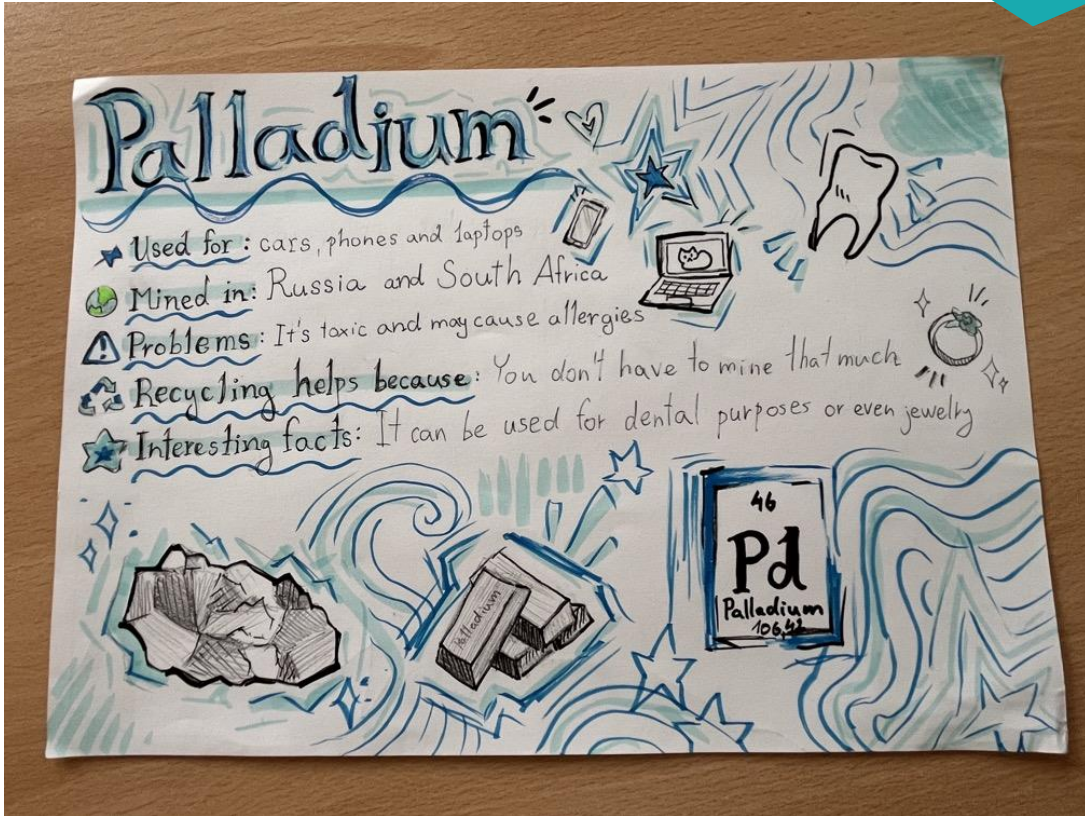 Palladium
Used for: cars, phones and laptops
Mined in: Russia and South Africa
Problems: It's toxic and may cause allergies
Recycling helps because: You don't have to mine that much
Interesting facts: It can be used for dental purposes or even jewelry
Palladium
46
Pd
Palladium
106,42